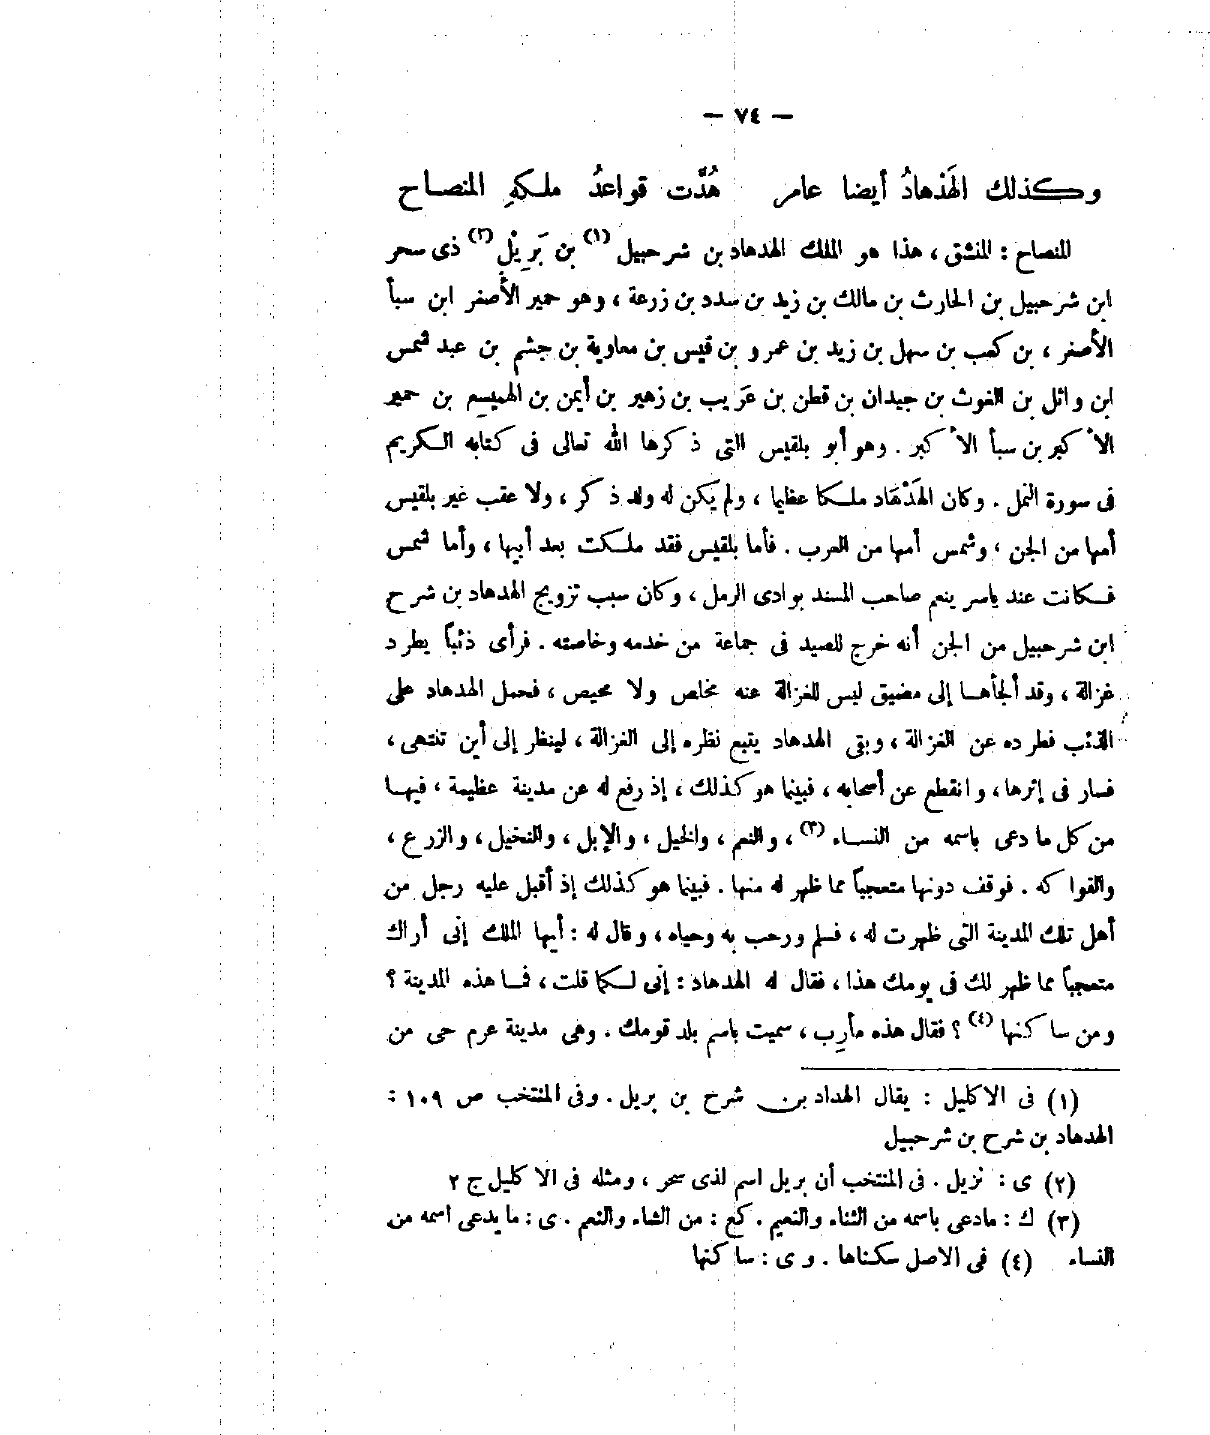 — ٧٤ —
وكذلك الهَدْهادُ أيضا عامر هُدَّت قواعدُ ملكهِ المنصاح
المنصاح : المنشق ، هذا هو الملك الهدهاد بن شرحبيل (١) بن بَرِيْل (٢) ذى سحر
ابن شرحبيل بن الحارث بن مالك بن زيد بن سدد بن زرعة ، وهو حمير الأصغر ابن سبأ
الأصغر ، بن كعب بن سهل بن زيد بن عمرو بن قيس بن معاوية بن جشم بن عبد شمس
ابن وائل بن الغوث بن جيدان بن قطن بن عَرِيب بن زهير بن أيمن بن الهميسع بن حمير
الأكبر بن سبأ الأكبر . وهو أبو بلقيس التى ذكرها الله تعالى فى كتابه الكريم
فى سورة النمل . وكان الهَدْهَاد ملكا عظيما ، ولم يكن له ولد ذكر ، ولا عقب غير بلقيس
أمها من الجن ، وشمس أمها من العرب . فأما بلقيس فقد ملكت بعد أبيها ، وأما شمس
فكانت عند ياسر ينعم صاحب المسند بوادى الرمل ، وكان سبب تزويج الهدهاد بن شرح
ابن شرحبيل من الجن أنه خرج للصيد فى جماعة من خدمه وخاصته . فرأى ذئباً يطرد
غزالة ، وقد ألجأها إلى مضيق ليس للغزالة عنه مخلص ولا محيص ، فحمل الهدهاد على
الذئب فطرده عن الغزالة ، وبقى الهدهاد يتبع نظره إلى الغزالة ، لينظر إلى أين تنتهى ،
فسار فى إثرها ، وانقطع عن أصحابه ، فبينما هو كذلك ، إذ رفع له عن مدينة عظيمة ، فيها
من كل ما دعى باسمه من النساء (٣) ، والنعم ، والخيل ، والإبل ، والنخيل ، والزرع ،
والفواكه . فوقف دونها متعجباً مما ظهر له منها . فبينما هو كذلك إذ أقبل عليه رجل من
أهل تلك المدينة التى ظهرت له ، فسلم ورحب به وحياه ، وقال له : أيها الملك إنى أراك
متعجباً مما ظهر لك فى يومك هذا ، فقال له الهدهاد : إنى لكما قلت ، فما هذه المدينة ؟
ومن ساكنها (٤) ؟ فقال هذه مأرِب ، سميت باسم بلد قومك . وهى مدينة عرم حى من
(١) فى الاكليل : يقال الهداد بن شرح بن بريل . وفى المنتخب ص ١٠٩ :
الهدهاد بن شرح بن شرحبيل
(٢) ى : نزيل . فى المنتخب أن بريل اسم لذى سحر ، ومثله فى الاكليل ج ٢
(٣) ك : مادعى باسمه من الثناء والنعيم . كع : من الشاء والنعم . ى : ما يدعى اسمه من
النساء (٤) فى الاصل سكناها . و ى : ساكنها